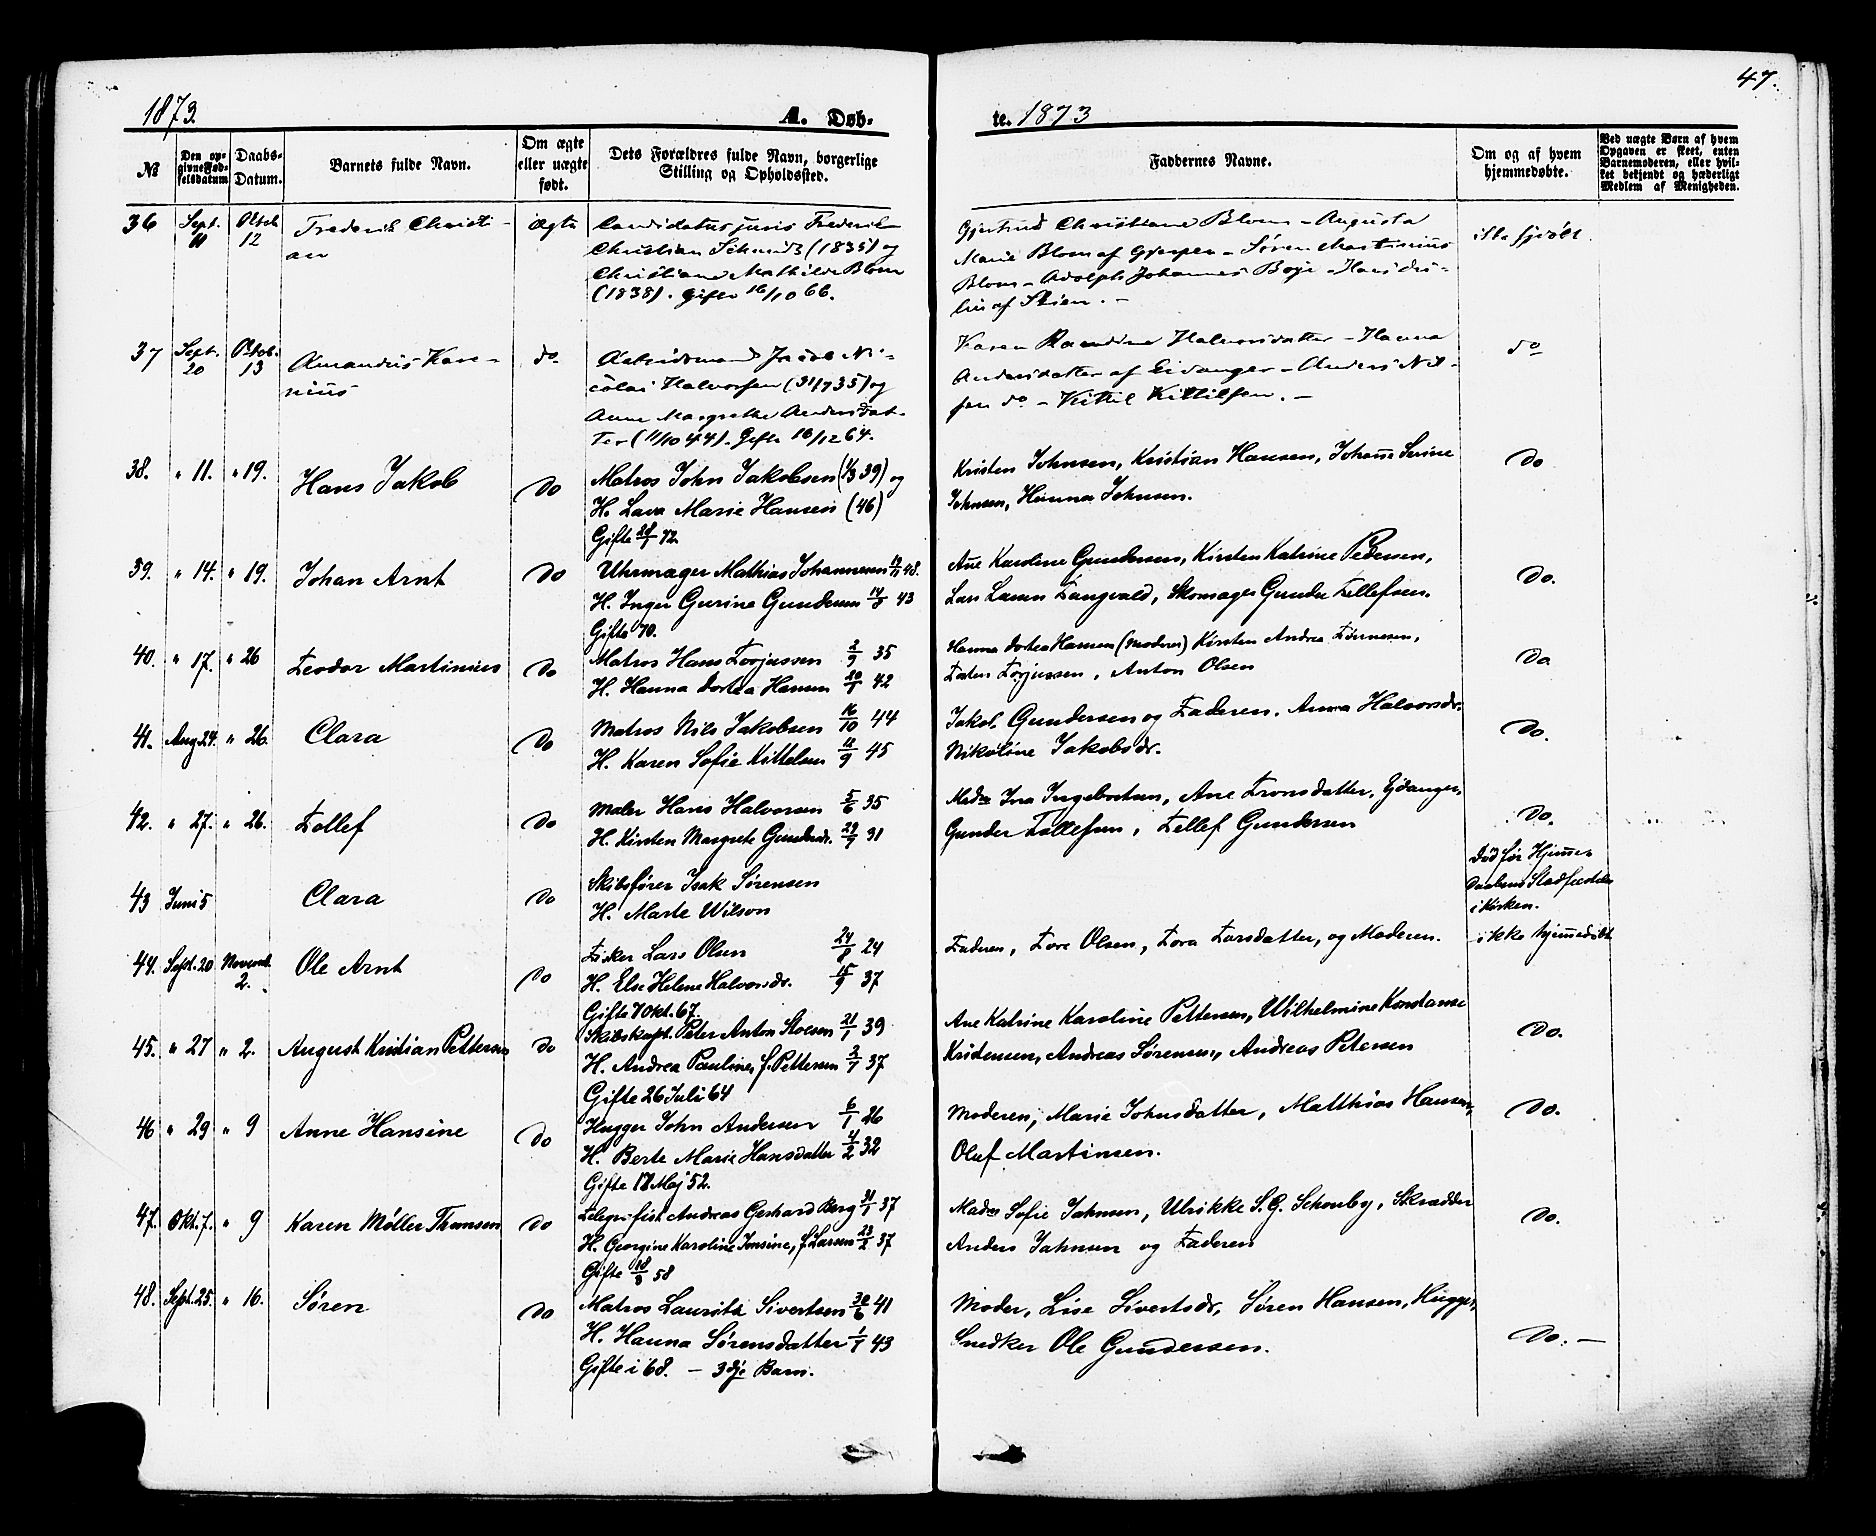 47.
1873.
A. Døb-
te. 1873
No
Den op-
givne Fød-
selsdatum
Daabs-
Datum.
Barnets fulde Navn.
Om ægte
eller uægte
født.
Dets Forældres fulde Navn, borgerlige
Stilling og Opholdssted.
Faddernes Navne.
Om og af hvem
hjemmedøbte.
Ved uægte Børn af hvem
Opgaven er skeet, enten
Barnemoderen, eller hvil-
ket bekjendt og hæderligt
Medlem af Menigheden.
36 Sept. 11 Oktob. 12 Frederik Christi-
an
Ægte
Candidatus juris Frederik
Christian Schmidt (1835) og
Christiane Mathilde Blom
(1838). Gifte 16/10 66.
Gjertrud Christiane Blom - Augusta
Marie Blom af Gjerpen - Søren Martinius
Blom - Adolph Johannes Boye - Hans
af Skien. -
ikke hjdøbt.
37 Sept. 20 Oktob. 13 Amandus Kare-
nius
do.
Arbeidsmand Jacob Ni-
colai Halvorsen (31/7 35) og
Anne Margrethe Andersdat-
ter (11/10 44). Gifte 16/12 64.
Karen Halvorsdatter - Hanna
Andersdatter af Eidanger - Anders Nil-
sen do - Kittil Kittilsen. -
do
38. " 11. " 19. Hans Jakob
Do
Matros John Jakobsen (1/3 39) og
H. Lava Marie Hansen (46)
Gifte 28/1 72.
Kristen Johnsen, Kristian Hansen, Johanne Serine
Johnsen, Hanna Johnsen.
Do
39. " 14. " 19. Johan Arnt
Do
Uhrmager Mathias Johannesen 12/11 48.
H. Inger Gurine Gundersen 14/8 43
Gifte 70.
Ane Karoline Gundersen, Kirsten Katrine Pedersen,
Lars Larsen Langvald, Skomager Gunder Tellefsen.
Do.
40. " 17. " 26 Teodor Martinius
Do
Matros Hans Torjussen 2/9 35
H. Hanna Dortea Hansen 20/1 42
Hanna Dortea Hansen (Moderen) Kirsten Andrea Tønnesen,
Torjussen, Anton Olsen
Do.
41. Aug 24. " 26. Clara
Do
Matros Nils Jakobsen 16/10 44
H. Karen Sofie Kittelsen 11/9 45
Jakob Gundersen og Faderen. Anna Halvorsdr.
Nikoline Jakobsdr.
Do.
42. " 27. " 26. Tollef
Do
Maler Hans Halvorsen 5/6 35
H. Kirsten Margrete Gundersdr. 29/9 31
Mad Ina Ingebretsen, Ane Tronsdatter, Ejdanger,
Gunder Tollefsen, Tellef Gundersen
Do.
43 Juni 5 Clara
Do
Skibsfører Isak Sørensen
H. Marte Wilson
Død før Hjemme
Daabens Stadfæstelse
i Kirken.
44. Sept. 20 Novemb. 2. Ole Arnt
Do
Fisker Lars Olsen 24/8 24
H. Else Helene Halvorsdr. 15/9 37
Gifte 7 Okt. 67.
Faderen, Tore Olsen, Tora Larsdatter, og Moderen.
ikke hjemmedøbt
45. " 27 " 2. August Kristian Pettersen
Do
Skibskapt. Peter Anton Stoesen 21/1 39
H. Andrea Pauline, f. Pettersen 3/7 37
Gifte 26 Juli 64
Ane Katrine Karoline Pettersen, Wilhelmine Konstanse
Kristensen, Andreas Sørensen, Andreas Petersen
Do.
46 " 29 " 9 Anne Hansine
Do
Hugger John Andersen 6/1 26
H. Berte Marie Hansdatter 4/2 32
Gifte 17 Maj 52.
Moderen, Marie Johnsdatter, Matthias Hansen,
Oluf Martinsen.
Do.
47. Okt. 7. " 9 Karen Møller Thomsen
Do
Telegrafist Andreas Gerhard Berg 31/1 37
H. Georgine Karoline Jonsine, f. Larsen 23/2 37
Gifte 18/8 58
Mad Sofie Jahnsen, Ulrikke S. G. Schouby, Skrædder
Anders Jahnsen og Faderen
Do.
48. Sept. 25. " 16. Søren
Do
Matros Laurits Sivertsen 30/6 41
H. Hanna Sørensdatter 1/1 43
Gifte i 68. - 3dje Barn.
Moder, Lise Sivertsdr, Søren Hansen, Hugger,
Snedker Ole Gundersen.
Do. -